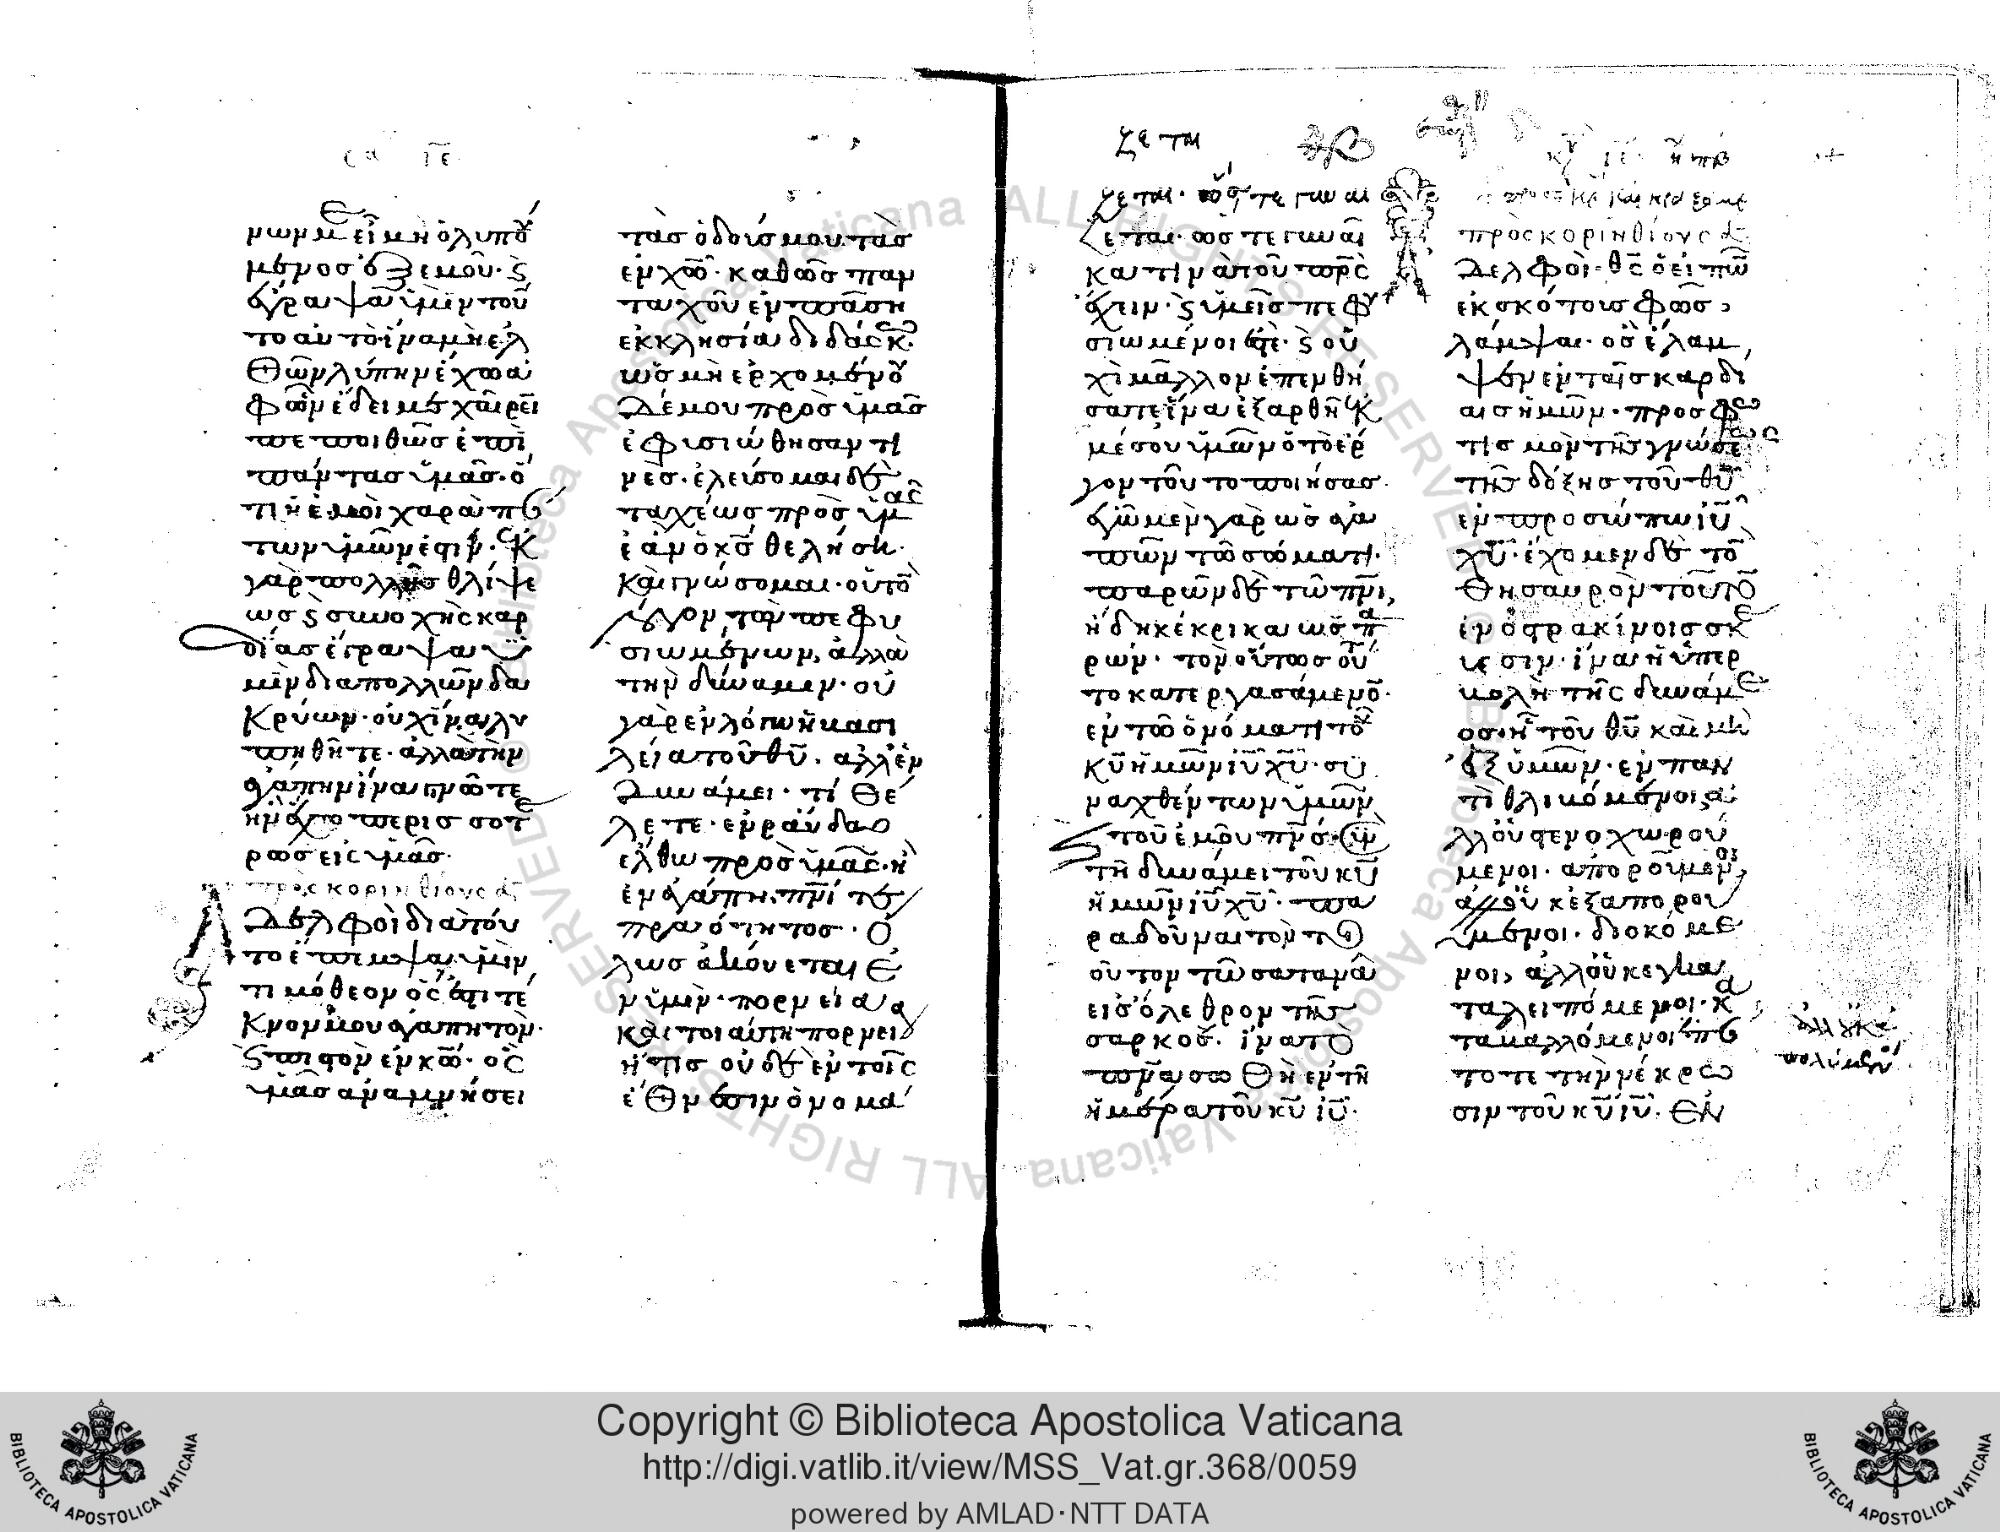 ϲα ιε
νων με εἰ μὴ ὁ λυπού
μενος ἐξ ἐμοῦ· καὶ
ἔγραψα ὑμῖν τοῦ
το αὐτὸ ἵνα μὴ ἐλ
θὼν λύπην ἔχω ἀ
φ᾽ ὧν ἔδει με χαίρειν
πεποιθὼς ἐπὶ
πάντας ὑμᾶς· ὅ
τι ἡ ἐμοὶ χαρὰ πάν
των ὑμῶν ἐστιν· ἐκ
γὰρ πολλῆς θλίψε
ως καὶ συνοχῆς καρ
δίας ἔγραψα ὑ
μῖν διὰ πολλῶν δα
κρύων· οὐχ ἵνα λυ
πηθῆτε· ἀλλὰ τὴν
ἀγάπην ἵνα γνῶτε
ἣν ἔχω περισσοτέ
ρως εἰς ὑμᾶς·
πρὸς κορινθίους α
Ἀδελφοὶ διὰ τοῦ
το ἔπεμψα ὑμῖν
τιμόθεον ὅς ἐστι τέ
κνον μου ἀγαπητὸν·
καὶ πιστὸν ἐν κω· ὃς
ὑμᾶς ἀναμνήσει
τὰς ὁδοίς μου τὰς
ἐν χω· καθὼς παν
ταχοῦ ἐν πάση
ἐκκλησία διδάσκω·
ὡς μὴ ἐρχομένου
δέ μου πρὸς ὑμᾶς
ἐφισιώθησάν τι
νὲς· ἐλεύσομαι δὲ
ταχέως πρὸς ὑμᾶς
ἐὰν ὁ κς θελήση·
καὶ γνώσομαι· οὐ τὸν
λόγον τὸν πεφυ
σιωμένων, ἀλλὰ
τὴν δύναμιν· οὐ
γὰρ ἐν λόγω ἡ βασι
λεία τοῦ θυ· ἀλλ᾽ ἐν
δυνάμει· τί θέ
λετε· ἐν ράβδω
ἔλθω πρὸς ὑμᾶς· ἢ
ἐν ἀγάπη· πνι τε
πραότητος· ὅ
λως ἀκούεται ἐ
ν ὑμῖν· πορνεία
καὶ τοιαύτη πορνεί
α ἥτις οὐδὲ ἐν τοῖς
ἔθνεσιν ὀνομά
ζεται
ζεται· ὥστε γυναι
ζεται· ὥστε γυναῖ
κα τινὰ τοῦ πρς
ἔχειν· καὶ ὑμεῖς πεφυ
σιωμένοι ἐστὲ· καὶ οὐ
χὶ μᾶλλον ἐπενθή
σατε ἵνα ἐξαρθῆ ἐκ
μέσου ὑμῶν ὁ τὸ ἔρ
γον τοῦτο ποιήσας·
ἐγὼ μὲν γὰρ ὡς ἀ
πὼν τῶ σώματι·
παρὼν δὲ τῶ πνι,
ἤδη κέκρικα ὡς πα
ρών· τὸν οὕτως τοῦ
το κατεργασάμενον·
ἐν τῶ ὀνόματι τοῦ
κυ ἡμῶν ιυ χυ· συ
ναχθέντων ὑμῶν
καὶ τοῦ ἐμοῦ πνς· σὺν
τῆ δυνάμει τοῦ κυ
ἡμῶν ιυ χυ· πα
ραδοῦναι τὸν τοι
οῦτον τῶ σατανᾶ
εἰς ὄλεθρον τῆς
σαρκός· ἵνα τὸ
πνα σωθῆ ἐν τῆ
ἡμέρα τοῦ κυ ιυ·
πρὸς κορινθίους
Ἀδελφοὶ· θς ὁ εἰπὼν
ἐκ σκότους φῶς
λάμψαι· ὃς ἔλαμ
ψεν ἐν ταῖς καρδί
αις ἡμῶν· πρὸς φω
τισμὸν τῆς γνώσε
τῆς δόξης τοῦ θυ
ἐν προσώπω ιυ
χυ· ἔχομεν δὲ τὸν
θησαυρὸν τοῦτον
ἐν ὀστρακίνοις σκεύ
εσιν· ἵνα ἡ ὑπερ
βολὴ τῆς δυνάμε
ος· ἦ τοῦ θυ καὶ μὴ
ἐξ ὑμῶν· ἐν παν
τὶ θλιβόμενοι, ἀ
λλ᾽ οὐ στενοχωρού
μενοι· ἀποροῦμενοι,
ἀλλ᾽ οὐκ ἐξαπορού
μενοι· διοκόμε
νοι, ἀλλ᾽ οὐκ ἐγκα
ταλειπόμενοι· κα
ταβαλλόμενοι πάν
τοτε τὴν νέκρω
σιν τοῦ κυ ιυ· ἐν
ἀλλ᾽ οὐκ ἀ
πολύμενοι
Copyright © Biblioteca Apostolica Vaticana
http://digi.vatlib.it/view/MSS_Vat.gr.368/0059
powered by AMLAD·NTT DATA
BIBLIOTECA APOSTOLICA VATICANA
BIBLIOTECA APOSTOLICA VATICANA